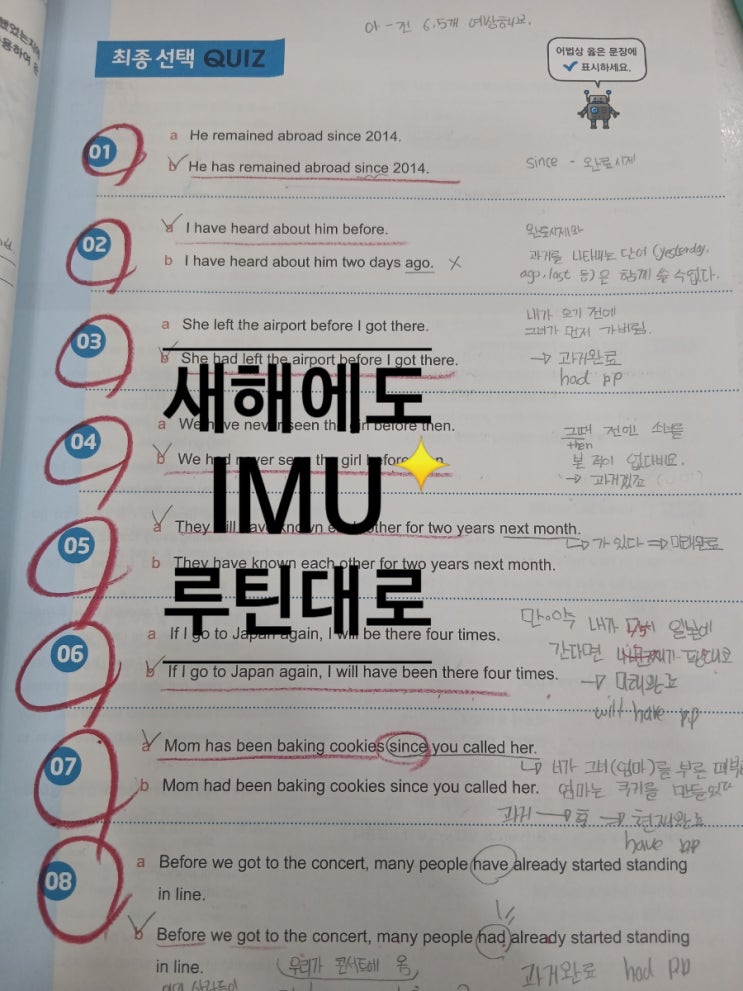 아-전 6.5개 예상해요.
최종 선택 QUIZ
어법상 옳은 문장에
✓ 표시하세요.
01
a He remained abroad since 2014.
b He has remained abroad since 2014.
since - 완료시제
02
a I have heard about him before.
b I have heard about him two days ago. X
완료시제와
과거를 나타내는 단어 (yesterday,
ago, last 등)은 함께 쓸 수 없다.
03
a She left the airport before I got there.
b She had left the airport before I got there.
내가 오기 전에
그녀가 먼저 가버림.
→ 과거완료
had pp
새해에도
IMU
루틴대로
04
a We have never seen the girl before then.
b We had never seen the girl before then.
그때 전엔 소녀를
then
본 적이 없다네요.
→ 과거
05
a They will have known each other for two years next month.
b They have known each other for two years next month.
→ 가 있다 ⇒ 미래완료
06
a If I go to Japan again, I will be there four times.
b If I go to Japan again, I will have been there four times.
만약 내가 다시 일본에
간다면
→ 미래완료
will have pp
07
a Mom has been baking cookies since you called her.
b Mom had been baking cookies since you called her.
↳ 네가 그녀(엄마)를 부른 때부
엄마는 쿠키를 만들었다
과거 → 현 → 현재완료
have pp
08
a Before we got to the concert, many people have already started standing
in line.
b Before we got to the concert, many people had already started standing
in line.
(우리가 콘서트에 옴)
과거완료 had pp